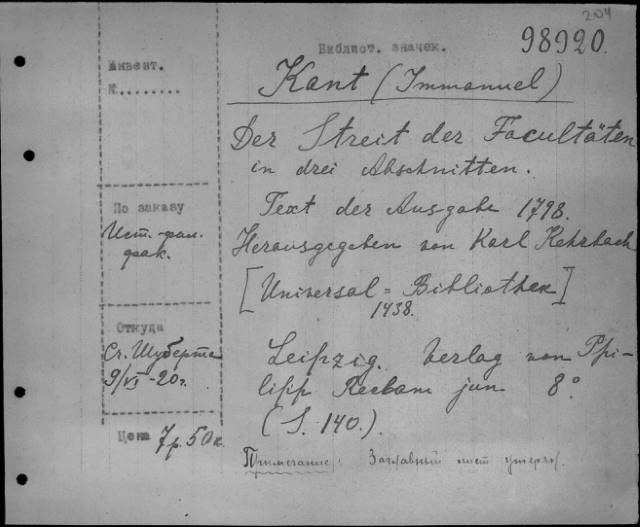 204
Библиот. значек.
98920.
Инвент.
№........
Kant (Immanuel)
Der Streit der Facultäten
in drei Abschnitten.
По заказу
Ист.-фил.
фак.
Text der Ausgabe 1798.
Herausgegeben von Karl Kehrbach
[Universal=Bibliothek]
1438.
Откуда
Ст. Шуберта
9/VI-20г.
Leipzig. Verlag von Phi-
lipp Reclam jun 8°.
(S. 140.).
Цена 7р. 50к
Примечание: Заглавный лист утерян.